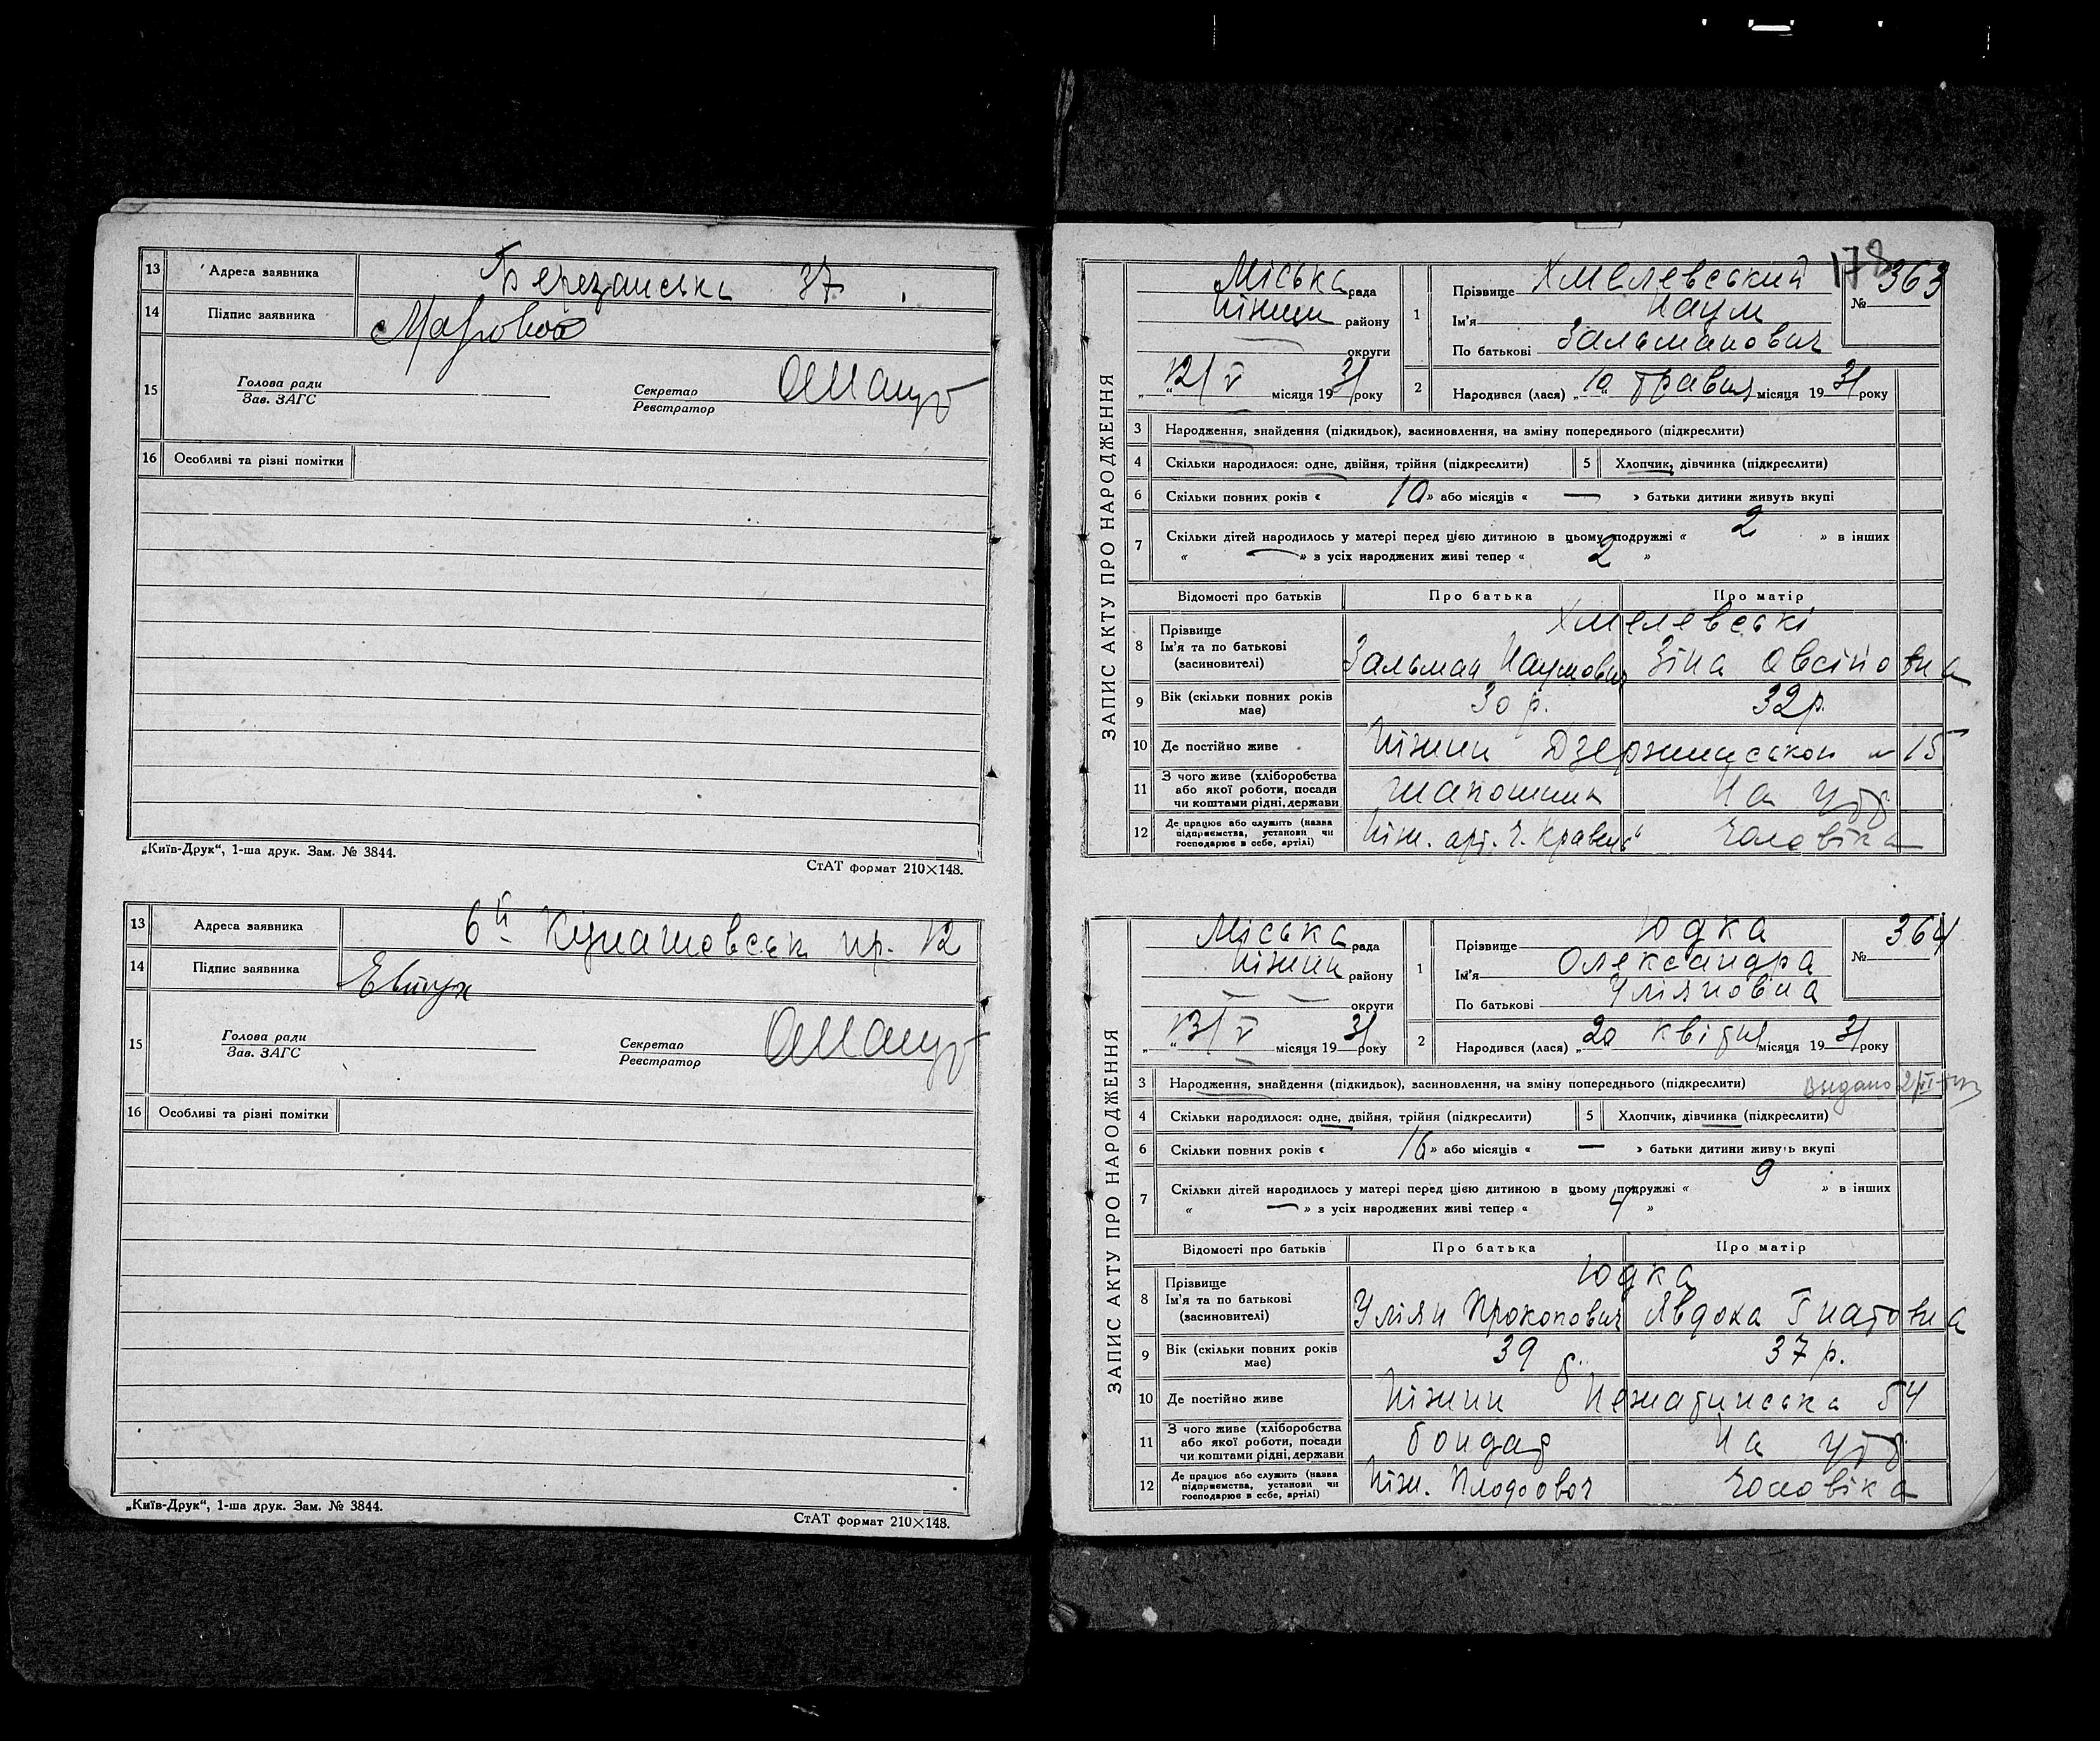 13 Адреса заявника Березанська 37
14 Підпис заявника
15 Голова ради
Зав. ЗАГС
Секретар
Реєстратор
16 Особливі та різні помітки
„Київ-Друк“, 1-ша друк. Зам. № 3844.
СтАТ формат 210×148.
13 Адреса заявника 6й пр. 12
14 Підпис заявника Евтух
15 Голова ради
Зав. ЗАГС
Секретар
Реєстратор
16 Особливі та різні помітки
„Київ-Друк“, 1-ша друк. Зам. № 3844.
СтАТ формат 210×148.
178
ЗАПИС АКТУ ПРО НАРОДЖЕННЯ
Міська рада
Ніжин району
округи
„12/V“ місяця 1931 року
1 Прізвище Хмелевський
Ім'я Наум
По батькові Зальманович
№ 363
2 Народився (лася) „10“ травня місяця 1931 року
3 Народження, знайдення (підкидьок), васиновлення, на зміну попереднього (підкреслити)
4 Скільки народилося: одне, двійня, трійня (підкреслити) 5 Хлопчик, дівчинка (підкреслити)
6 Скільки повних років « 10 » або місяців « — » батьки дитини живуть вкупі
7 Скільки дітей народилось у матері перед цією дитиною в цьому подружжі « 2 » в інших
« — » з усіх народжених живі тепер « 2 »
Відомості про батьків Про батька Про матір
8 Прізвище Хмелевські
Ім'я та по батькові
(засиновителі) Зальман Наумович Зіна Овсійовна
9 Вік (скільки повних років має) 30 р. 32 р.
10 Де постійно живе Ніжин Дзержинської 15
11 З чого живе (хліборобства
або якої роботи, посади
чи коштами рідні, держави шапошник На утр
12 Де працює або служить (назва
підприємства, установи чи
господарює в себе, артілі) Ніж. арт. Ч. Кравець чоловіка
ЗАПИС АКТУ ПРО НАРОДЖЕННЯ
Міська рада
Ніжин району
— — округи
„13/V“ місяця 1931 року
1 Прізвище Юдка
Ім'я Олександра
По батькові Уліяновна
№ 364
2 Народився (лася) „20 квітня місяця 1931 року
3 Народження, знайдення (підкидьок), васиновлення, на зміну попереднього (підкреслити) выдано
4 Скільки народилося: одне, двійня, трійня (підкреслити) 5 Хлопчик, дівчинка (підкреслити)
6 Скільки повних років « 16 » або місяців « — » батьки дитини живуть вкупі
7 Скільки дітей народилось у матері перед цією дитиною в цьому подружжі « 9 » в інших
« — » з усіх народжених живі тепер « 4 »
Відомості про батьків Про батька Про матір
8 Прізвище Юдка
Ім'я та по батькові
(засиновителі) Уліян Прокопович Явдоха Гнатовна
9 Вік (скільки повних років має) 39 р. 37 р.
10 Де постійно живе Ніжин 54
11 З чого живе (хліборобства
або якої роботи, посади
чи коштами рідні, держави бондар На утр
12 Де працює або служить (назва
підприємства, установи чи
господарює в себе, артілі) Ніж. Плодоовоч чоловіка